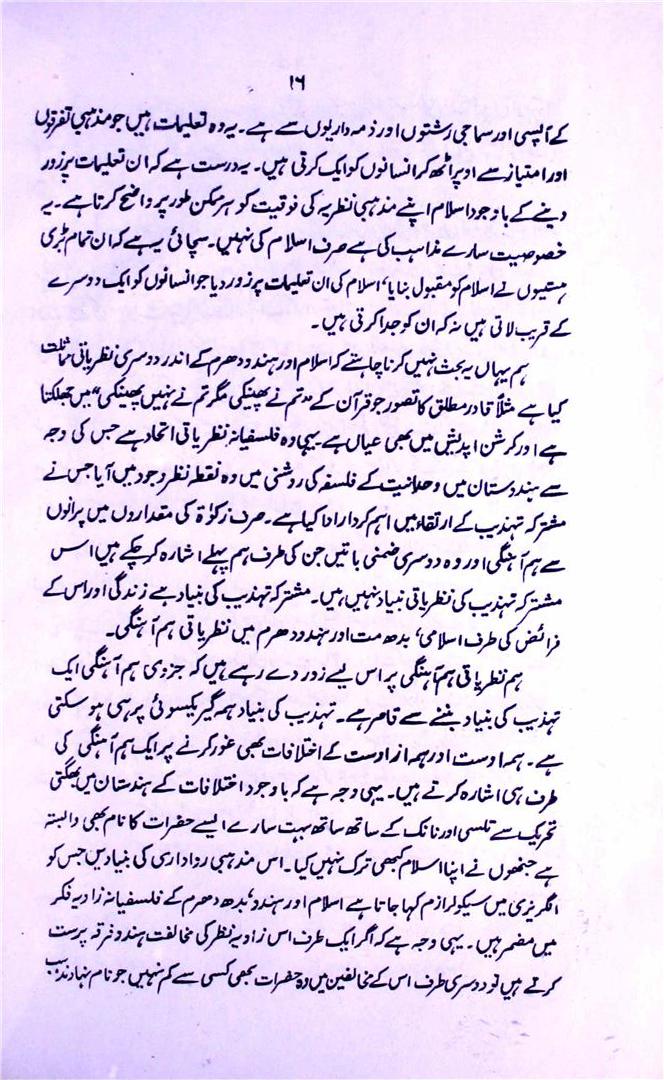 ۱۶
کے آپسی اور سماجی رشتوں اور ذمہ داریوں سے ہے۔ یہ وہ تعلیمات ہیں جو مذہبی تفرقوں
اور امتیاز سے اوپر اٹھ کر انسانوں کو ایک کرتی ہیں۔ یہ درست ہے کہ ان تعلیمات پر زور
دینے کے باوجود اسلام اپنے مذہبی نظریہ کی فوقیت کو ہر ممکن طور پر واضح کرتا ہے۔ یہ
خصوصیت سارے مذاہب کی ہے صرف اسلام کی نہیں۔ سچائی یہ ہے کہ ان تمام بڑی
ہستیوں نے اسلام کو مقبول بنایا، اسلام کی ان تعلیمات پر زور دیا جو انسانوں کو ایک دوسرے
کے قریب لاتی ہیں نہ کہ ان کو جدا کرتی ہیں۔
ہم یہاں یہ بحث نہیں کرنا چاہتے کہ اسلام اور ہندو دھرم کے اندر دوسری نظریاتی مماثلت
کیا ہے مثلاً قادر مطلق کا تصور جو قرآن کے "تم نے پھینکی مگر تم نے نہیں پھینکی" میں جھلکتا
ہے اور کرشن اپدیش میں بھی عیاں ہے یہی وہ فلسفیانہ نظریاتی اتحاد ہے جس کی وجہ
سے ہندوستان میں وحدانیت کے فلسفہ کی روشنی میں وہ نقطہ نظر وجود میں آیا جس نے
مشترکہ تہذیب کے ارتقاء میں اہم کردار ادا کیا ہے۔ صرف زکوٰۃ کی مقداروں میں پرانوں
سے ہم آہنگی اور وہ دوسری ضمنی باتیں جن کی طرف ہم پہلے اشارہ کر چکے ہیں اس
مشترکہ تہذیب کی نظریاتی بنیاد نہیں ہیں۔ مشترکہ تہذیب کی بنیاد ہے زندگی اور اس کے
فرائض کی طرف اسلامی، بدھ مت اور ہندو دھرم میں نظریاتی ہم آہنگی۔
ہم نظریاتی ہم آہنگی پر اس لیے زور دے رہے ہیں کہ جزوی ہم آہنگی ایک
تہذیب کی بنیاد بننے سے قاصر ہے۔ تہذیب کی بنیاد ہمہ گیر یکسوئی پر ہی ہو سکتی
ہے۔ ہمہ اوست اور ہمہ از اوست کے اختلافات بھی غور کرنے پر ایک ہم آہنگی کی
طرف ہی اشارہ کرتے ہیں۔ یہی وجہ ہے کہ باوجود اختلافات کے ہندستان میں بھگتی
تحریک سے تلسی اور نانک کے ساتھ ساتھ بہت سارے ایسے حضرات کا نام بھی وابستہ
ہے جنھوں نے اپنا اسلام کبھی ترک نہیں کیا۔ اس مذہبی رواداری کی بنیادیں جس کو
انگریزی میں سیکولرازم کہا جاتا ہے اسلام اور ہندو، بدھ دھرم کے فلسفیانہ زاویہ فکر
میں مضمر ہیں۔ یہی وجہ ہے کہ اگر ایک طرف اس زاویہ نظر کی مخالفت ہندو فرقہ پرست
کرتے ہیں تو دوسری طرف اس کے مخالفین میں وہ حضرات بھی کسی سے کم نہیں جو نام نہاد مذہب